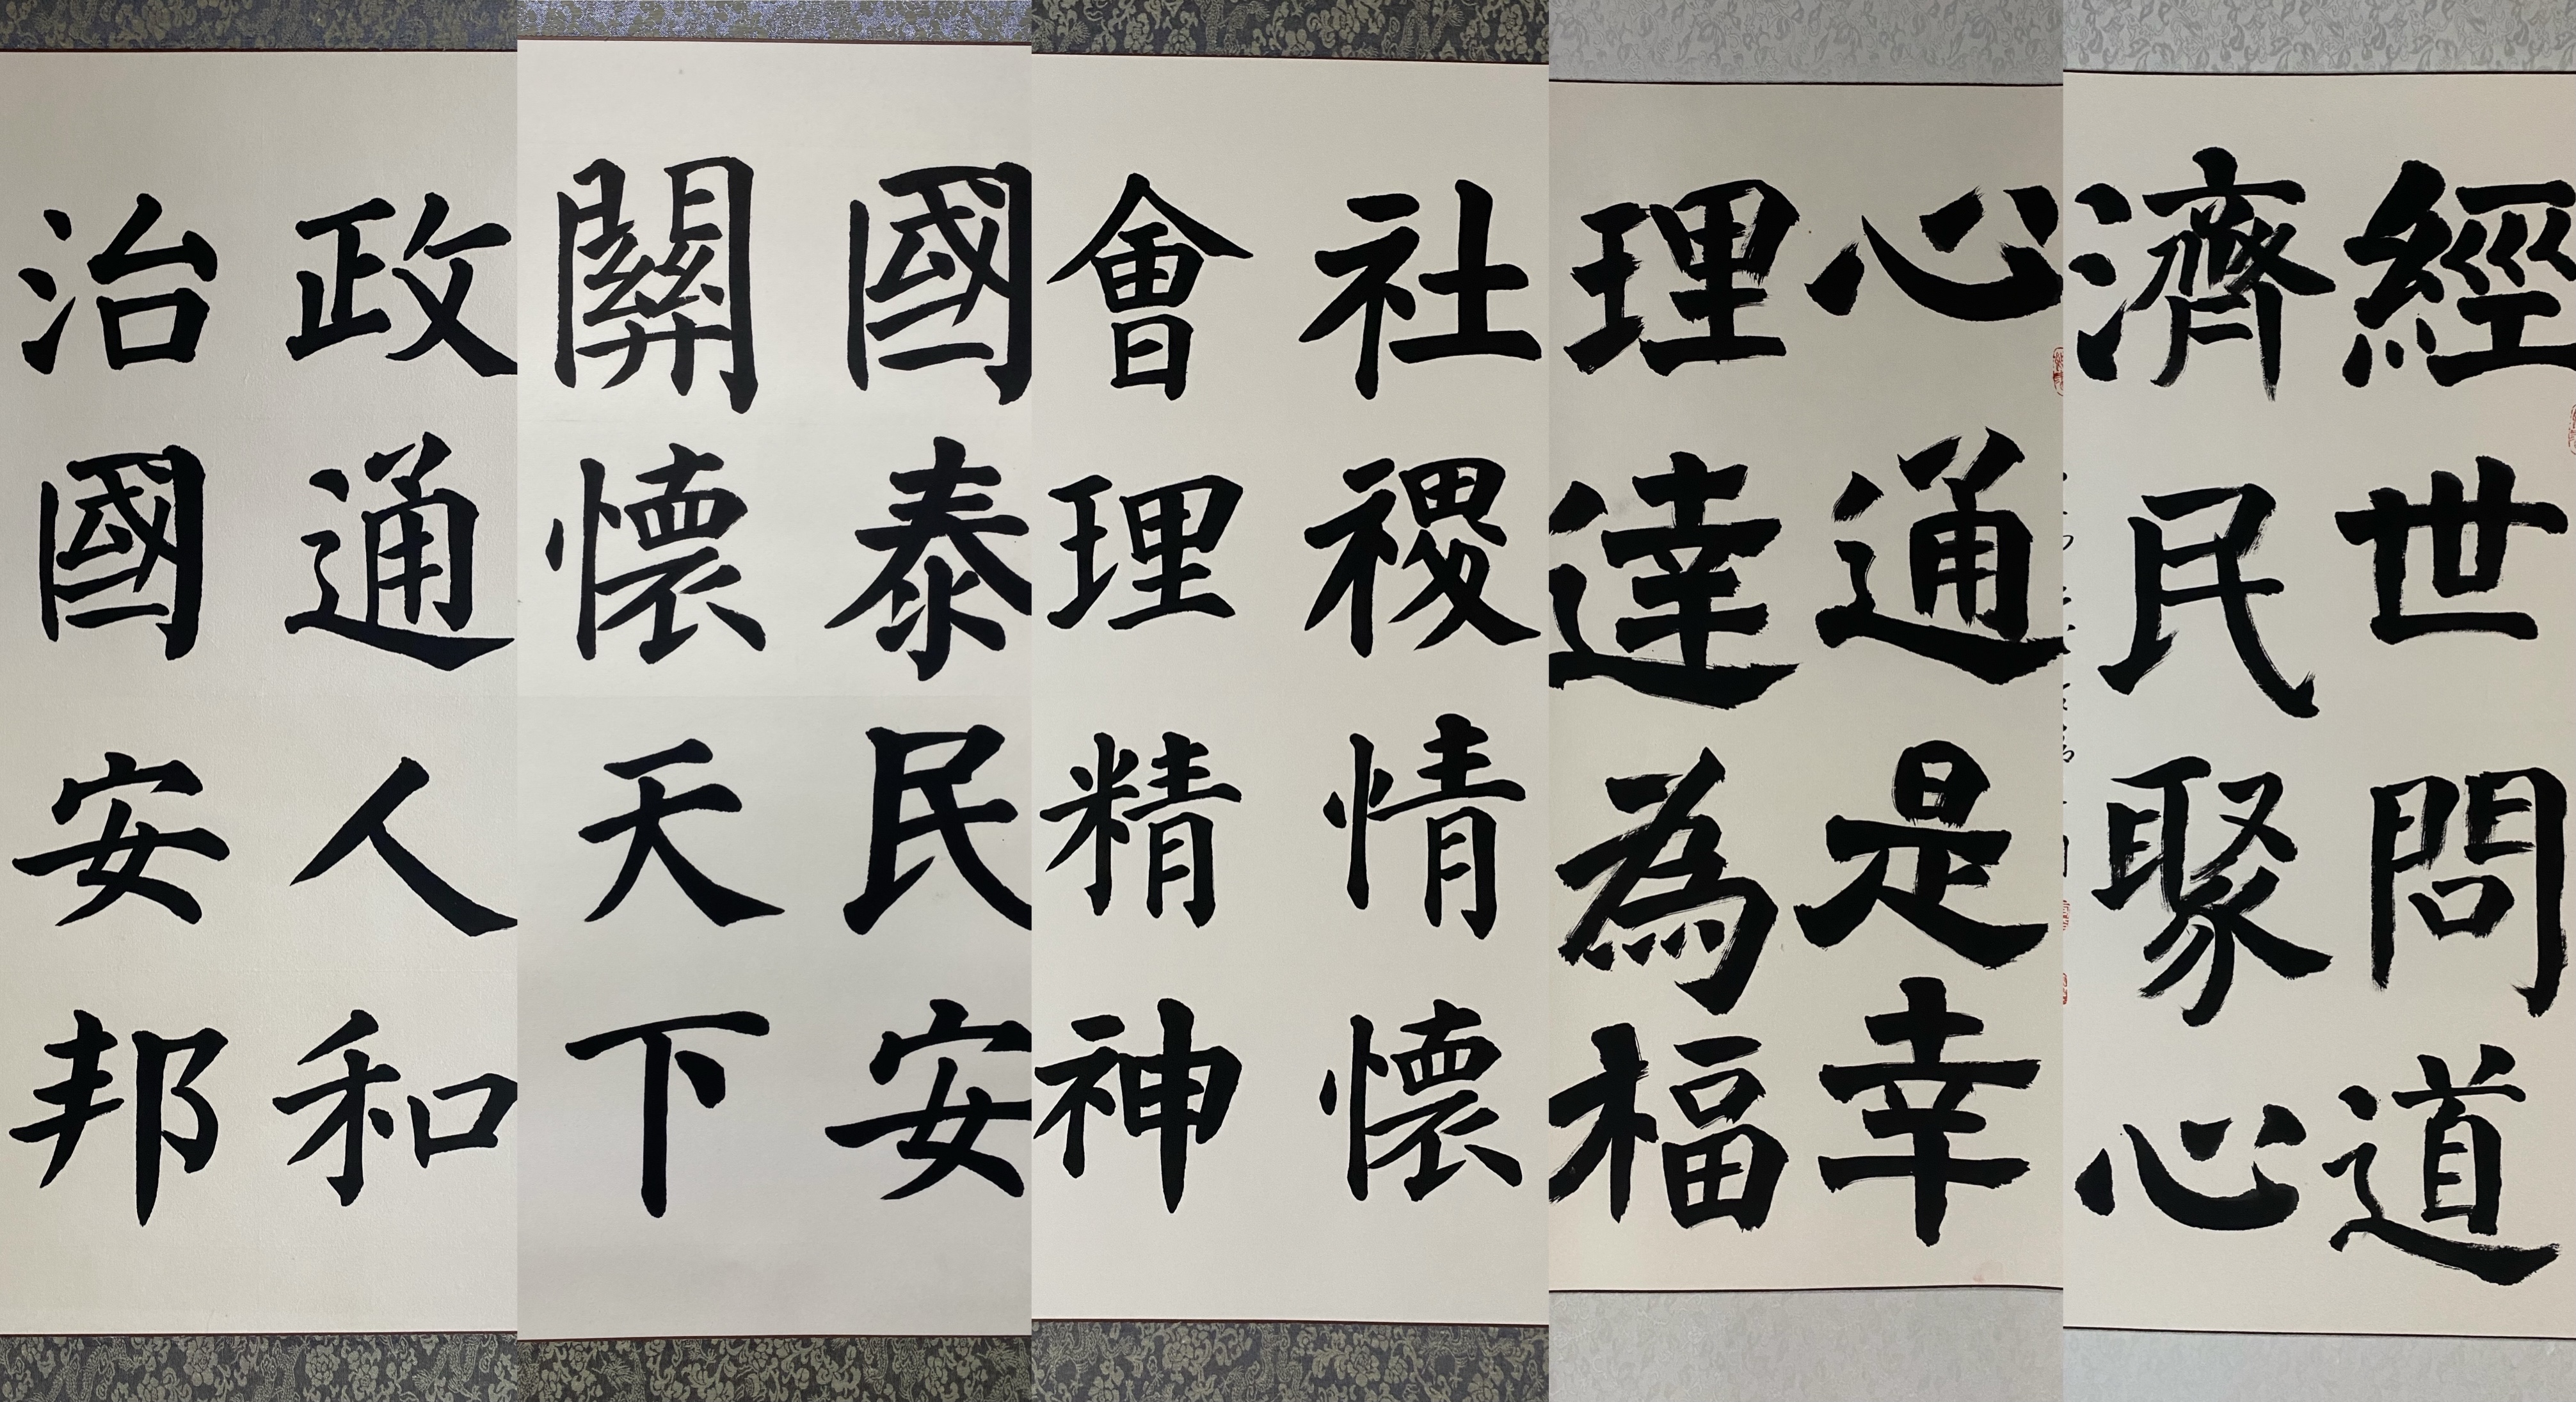 經世問道
濟民聚心
心通是幸
理達為福
社禝情懷
會理精神
國泰民安
關懷天下
政通人和
治國安邦